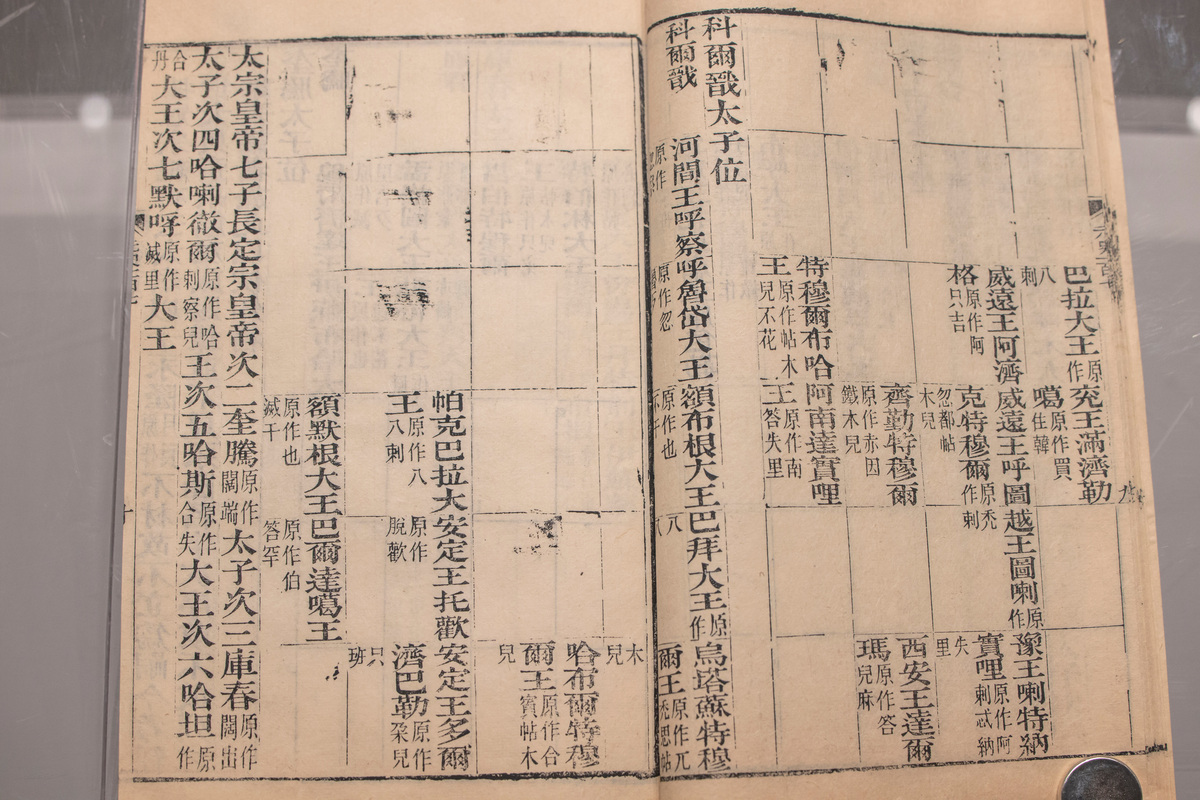 巴拉大王原作
八剌
兖王滿濟勒
噶原作買住韓
威遠王阿濟
格原作阿只吉
威遠王呼圖
克特穆爾原作
禿剌
忽都帖木兒
越王圖喇原作
禿剌
豫王喇特納
實哩原作阿剌忒納
失里
齊勤特穆爾
原作赤因鐵木兒
西安王達爾
瑪原作答兒麻
特穆爾布哈
王原作帖木兒不花
阿南達實哩
王原作南答失里
科爾戩太子位
科爾戩
河間王呼察
原作
呼魯岱大王
原作忽
額布根大王
原作也不干
巴拜大王原作
八八
烏塔蘇特穆
爾王原作兀禿思帖
木兒
哈布爾特穆
爾王原作合賓帖木
兒
帕克巴拉大
王原作八八剌
安定王托歡
原作脫歡
安定王多爾
濟巴勒原作朶兒
只班
額默根大王
原作也滅干
巴爾達噶王
原作伯答罕
太宗皇帝七子長定宗皇帝次二奎騰原作闊端太子次三庫春原作闊出
太子次四哈喇徹爾原作哈剌察兒王次五哈斯原作合失大王次六哈坦原作
合丹大王次七默呼原作滅里大王